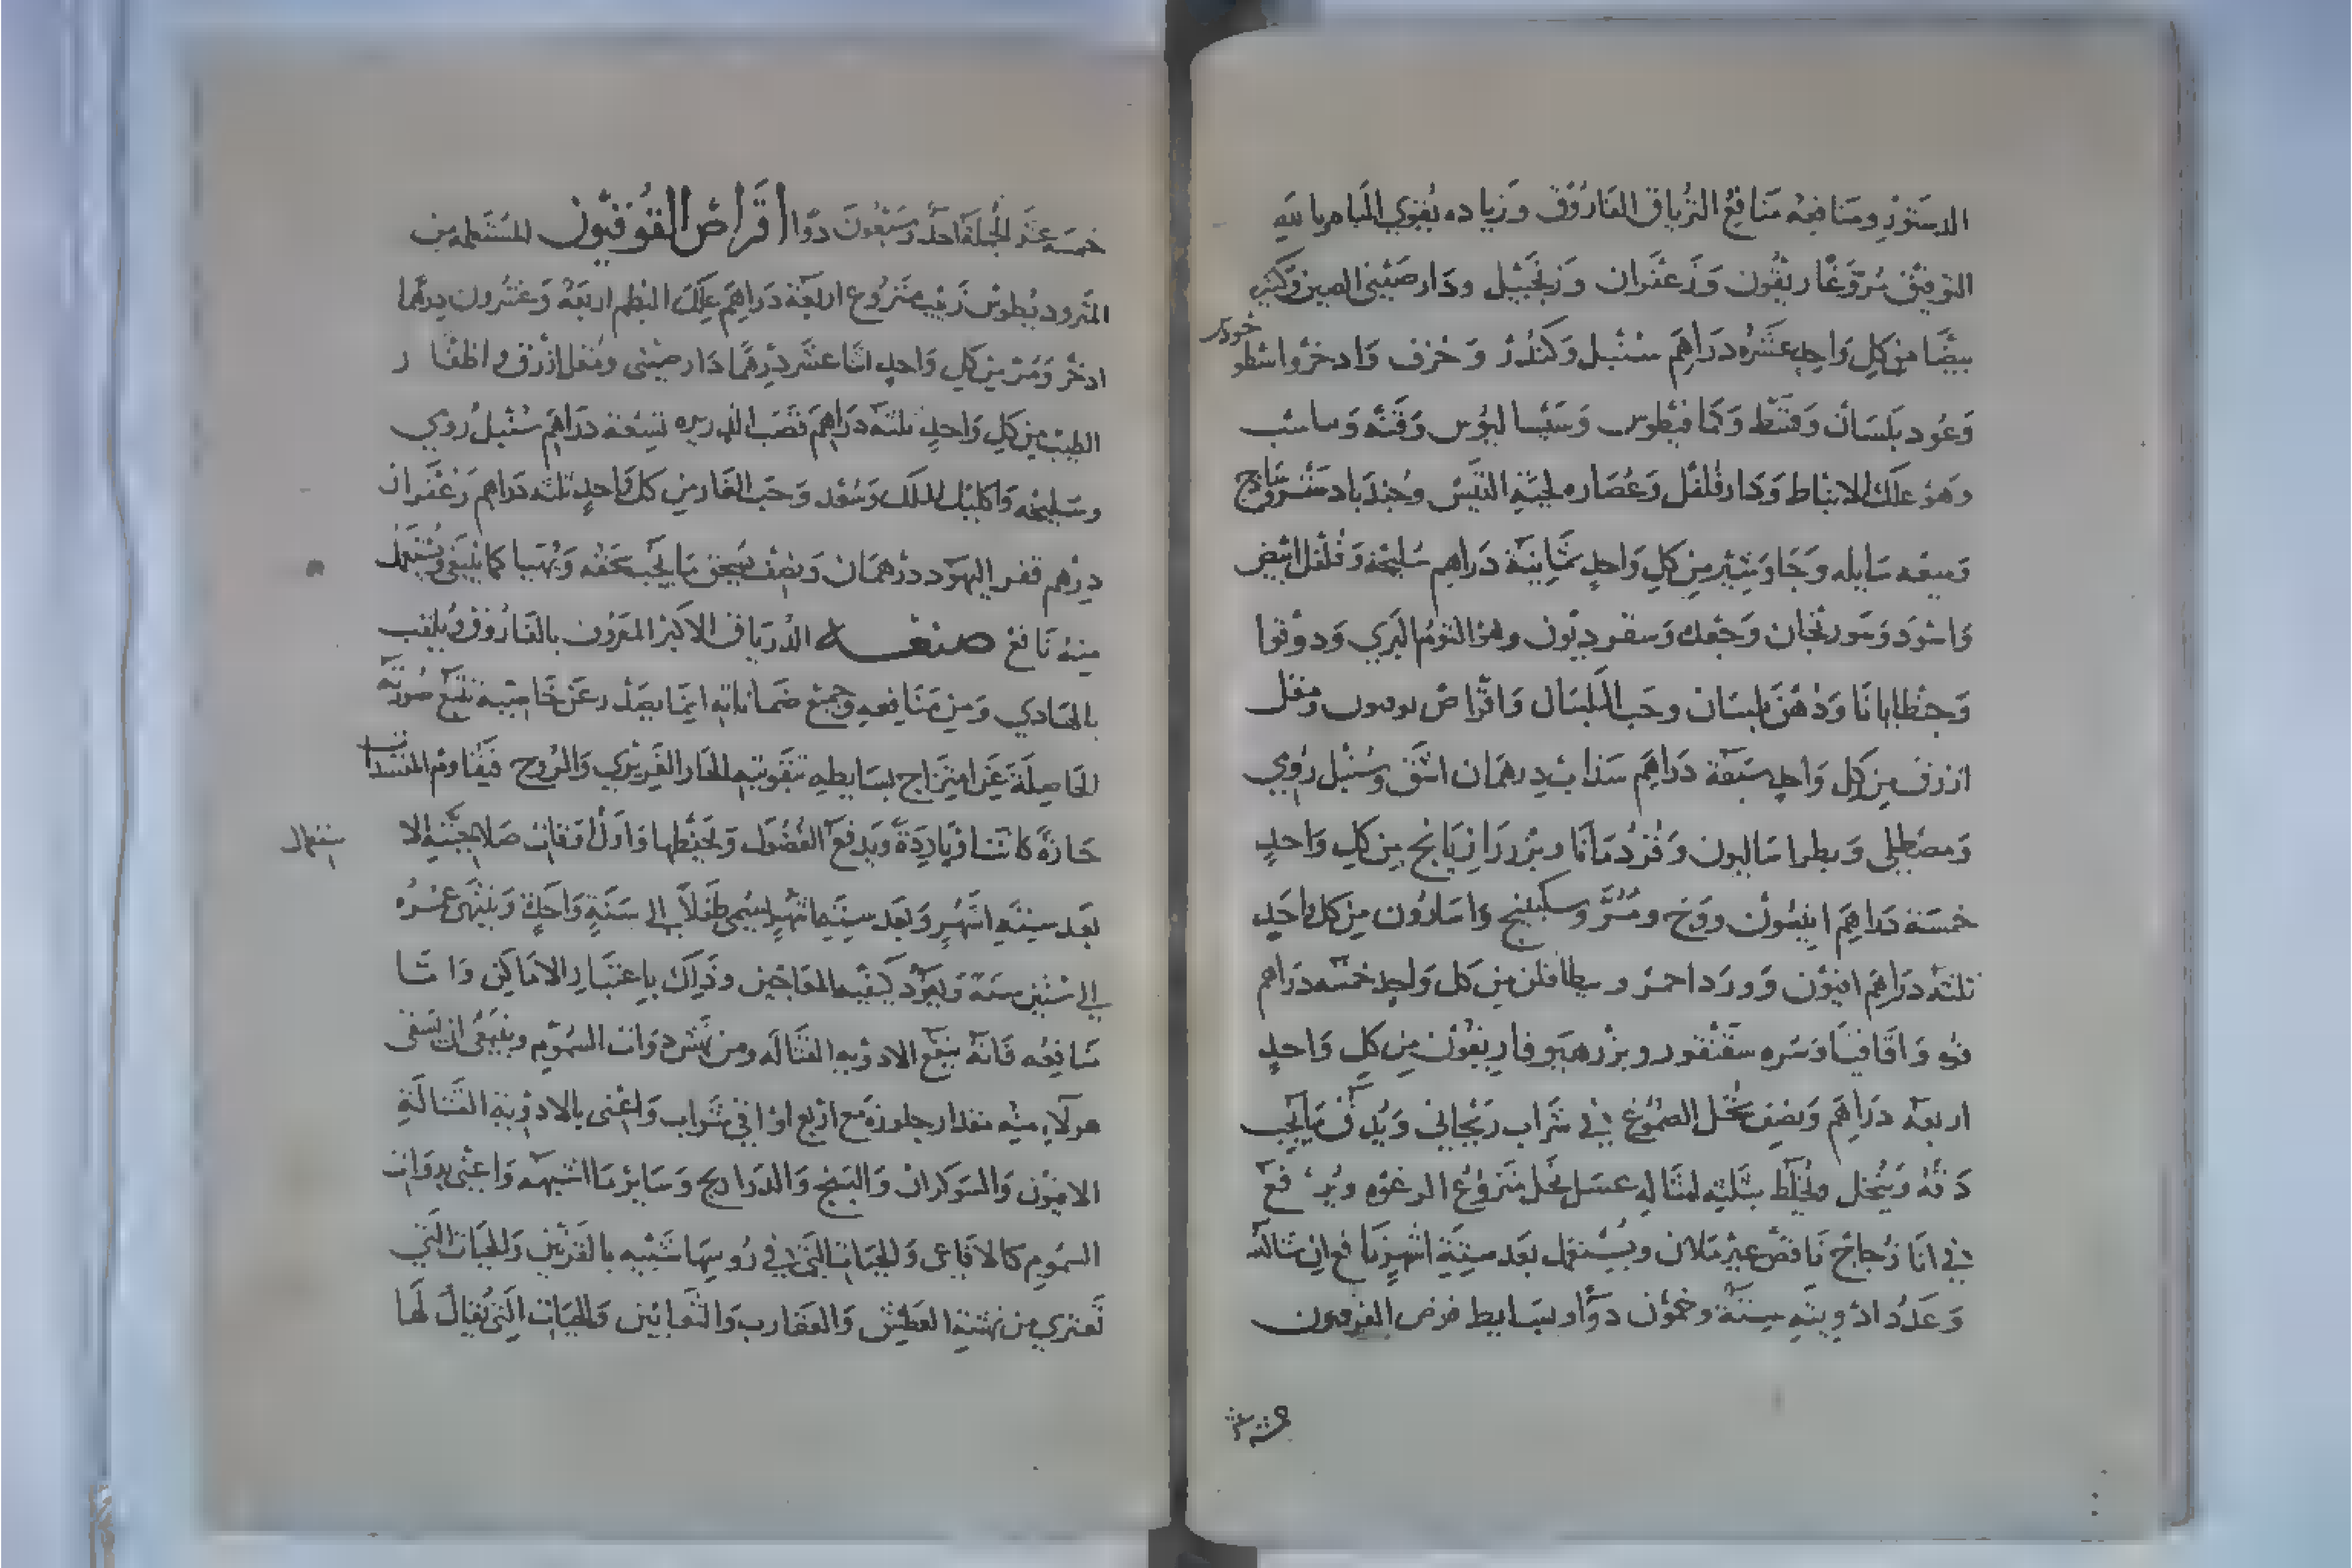 الدستور ومنافعه منافع الترياق الفاروق وزياده يقوي الباه
التوفيق غاريقون وزعفران وزنجبيل ودار صيني الصين وكثيرا
بيضا من كل واحد عشره دراهم سنبل وكندر وخرف وادخر واسطو
خودس
وعود بلسان وقسط وكمافيطوس وسيساليوس وقنه
وهو علك الانباط ودارفلفل وعصاره لحية التيس وجندبادستر
وميعه سايله وجاوشير من كل واحد ثمانية دراهم سليخه وفلفل ابيض
واسود وسورنجان وجعده وسقورديون وهو الثوم البري ودوقوا
وجنطيانا ودهن بلسان وحب البلسان واقراص ومقل
ازرق من كل واحد سبعة دراهم سذاب درهمان اشق وسنبل رومي
ومصطكي وفطراساليون وقردمانا وبزر رازيانج من كل واحد
خمسة دراهم انيسون ووج ومر وسكبينج واسارون من كل واحد
ثلثه دراهم افيون وورد احمر من كل واحد خمسه دراهم
فوه واقاقيا وسره سقنقور وبزر وفاريقون من كل واحد
اربعه دراهم ونصف تحل الصموغ في شراب ريحاني ويدق ما يجب
دقه وينخل ويخلط بثلثه امثاله عسل نحل منزوع الرغوه ويرفع
في انا زجاج ناقص غير ملان ويستعمل بعد ستة اشهر نافع ان شا الله
وعدد ادويته ستة وخمسون دوا وبسايط قرص القوفيون
خمسة عشر
خمسه عشر الجملة احد وسبعون دوا اقراص القوفيون المستعمله في
المثروديطوس زبيب منزوع اربعة دراهم علك البطم اربعه وعشرون درهما
ادخر ومر من كل واحد اثنا عشر درهما دار صيني ومقل ازرق واظفار
الطيب من كل واحد ثلثه دراهم قصب الذريره تسعة دراهم سنبل رومي
وسليخه واكليل الملك وسعد وحب الغار من كل واحد ثلثه دراهم زعفران
درهم قفر اليهود درهمان ونصف يسحق ما يجب سحقه ويهيا كما ينبغي ويستعمل
منه نافع صنعه الدرياق الاكبر المعروف بالفاروق ويلقب
بالهادي ومن منافعه وجميع انما يصدر عن خاصية تتبع صورته
الحاصلة عن امتزاج بسايطه بتقويته الحار الغريزي والروح فيقاوم
حارة كانت او باردة ويدفع الفضول واول اوقات صلاحيته الا
ستعمال
بعد ستة اشهر وبعد ستة اشهر يسمى طفلا الى سنة واحدة وينتهى عمره
الى ستين سنة كبقيه المعاجين وذلك باعتبار الاماكن واما
منافعه فانه ينفع الادويه القتاله ومن نهش دوات السموم وينبغي ان يسقى
هولاء منه مقدار جلوزة مع اربع اواقي شراب واعني بالادوية القتالة
الافيون والشوكران والبنج والدراريح وساير ما اشبهه واعني بدوات
السموم كالافاعي والحيات التي في روسها شبيه بالقرنين والحيات التي
تعتري من نهشتها العطش والعقارب والثعابين والحيات التي يقال لها